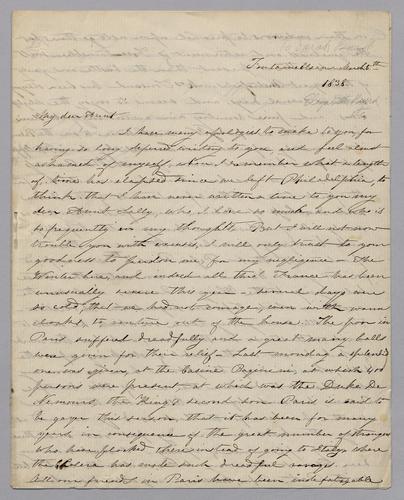 Fontainebleau March 5th
1838
My dear Aunt
I have many apologies to make to you for
having so long deferred writing to you and feel almost
ashamed of myself, when I remember what a length
of time has elapsed since we left Philadelphia, to
think that I have never written a line to you my
dear Aunt Sally, who I love so much and who is
so frequently in my thoughts. But I will not now
trouble you with excuses, I will only trust to your
goodness to pardon me for my negligence - The
Winter here, and indeed all thro' France has been
unusually severe this year & several days were
so cold, that we had not courage, even with warm
cloaks, to venture out of the house. The poor in
Paris suffered dreadfully and a great many balls
were given for their relief - Last monday a splendid
one was given, at the Casino Paganini, at which 400
persons were present, at which was the Duke De
Nemours, the King's second son Paris is said to
be gayer this season, that it has been for many
years in consequence of the great number of strangers
who have flocked there instead of going to Italy where
the Cholera has made such dreadful ravages.
All our friends in Paris have been indefatigable